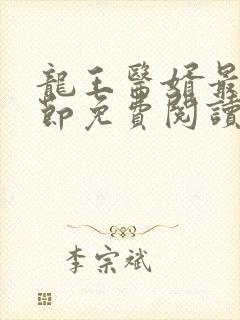 龍王醫婿最
節免費閱讀
李宗斌